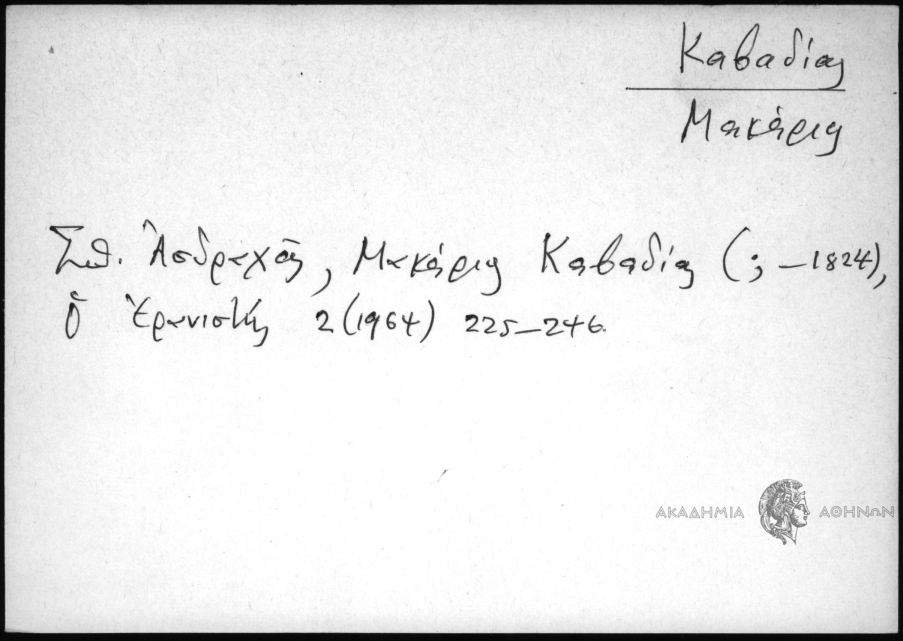 Καβαδίας
Μακάριος
Σπ. Ἀσδραχᾶς, Μακάριος Καβαδίας (; – 1824),
Ὁ Ἐρανιστής 2 (1964) 225–246.
ΑΚΑΔΗΜΙΑ ΑΘΗΝΩΝ